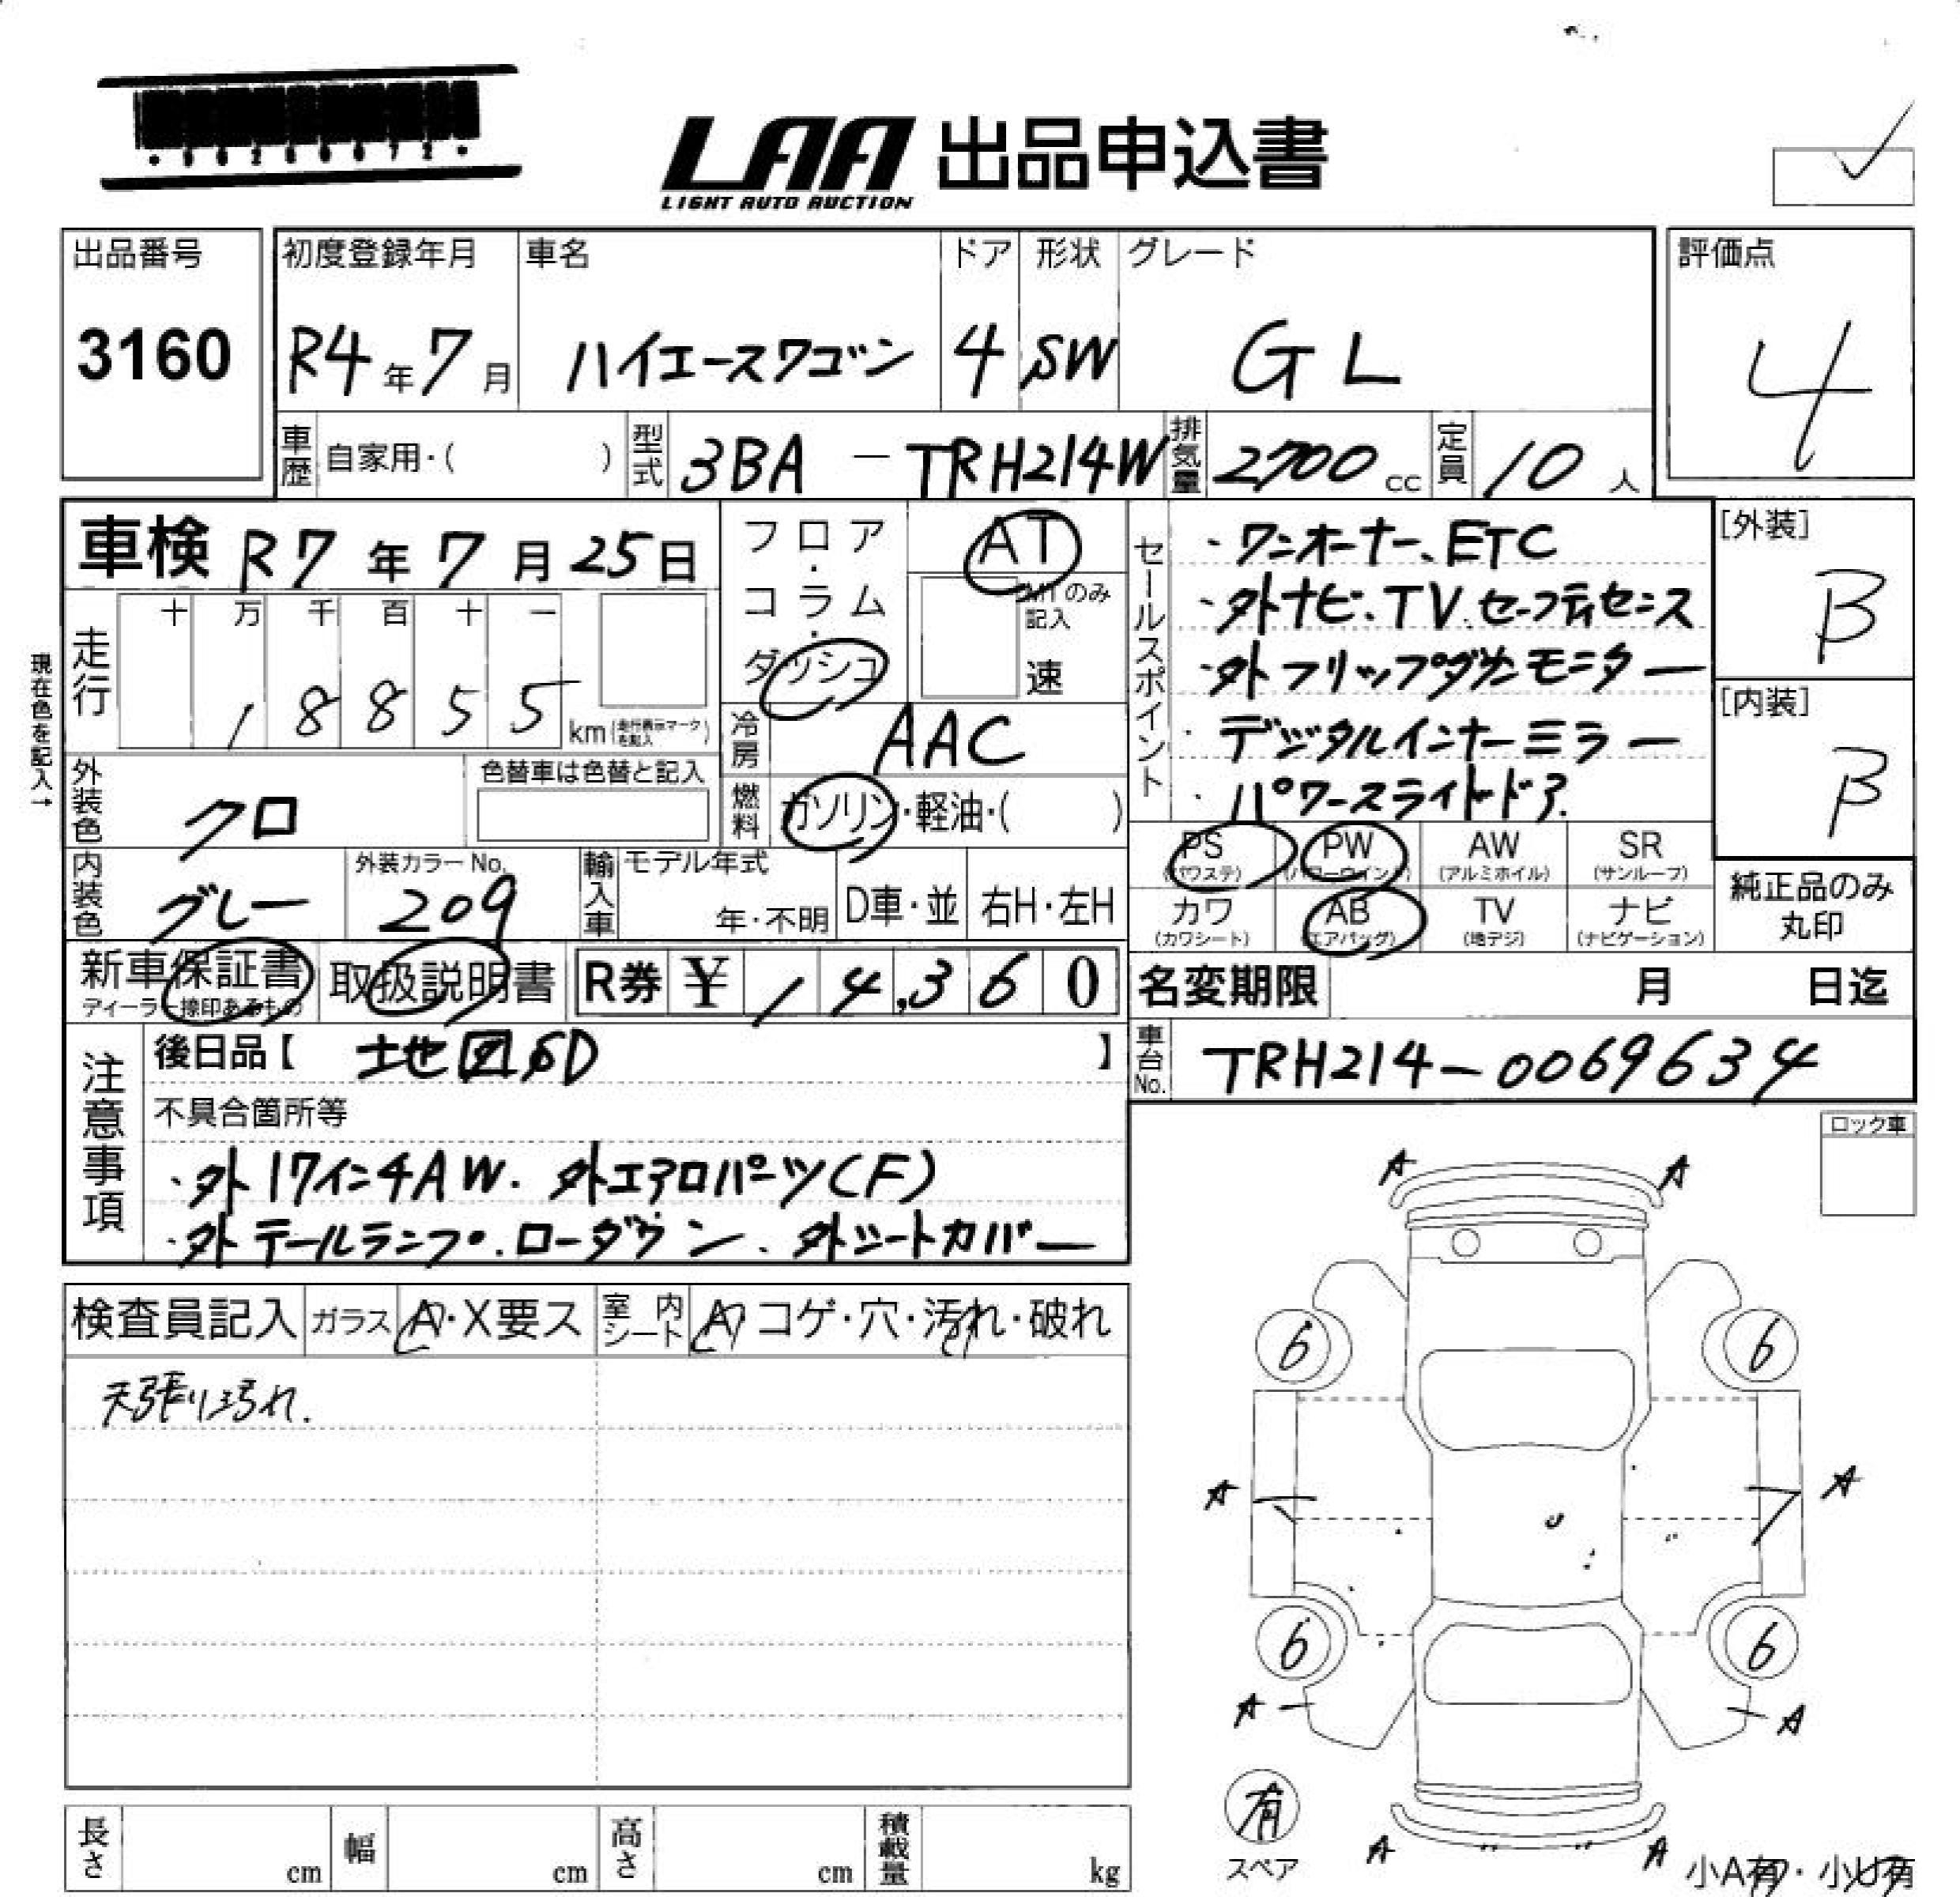 LAA 出品申込書
LIGHT AUTO AUCTION
出品番号
3160
初度登録年月 車名 ドア 形状 グレード
R4年7月 ハイエースワゴン 4 SW GL
評価点
4
車歴 自家用・( ) 型式 3BA - TRH214W 排気量 2700 cc 定員 10 人
車検 R7年7月25日
フロア・コラム・ダッシュ
AT
MTのみ記入
速
現在色を記入→
走行
十 万 千 百 十 一
1 8 8 5 5 km(走行表示マークを記入)
冷房 AAC
燃料 ガソリン・軽油・( )
外装色 クロ
色替車は色替と記入
内装色 グレー
外装カラーNo. 209
輸入車 モデル年式 年・不明 D車・並 右H・左H
セールスポイント
・ワンオーナー、ETC
・外ナビ、TV、セーフティセンス
・外フリップダウンモニター
・デジタルインナーミラー
・パワースライドドア.
[外装]
B
[内装]
B
PS PW AW SR
(パワステ) (パワーウインド) (アルミホイル) (サンルーフ)
カワ AB TV ナビ
(カワシート) (エアバッグ) (地デジ) (ナビゲーション)
純正品のみ
丸印
新車保証書 取扱説明書 R券 ¥ 14,360
ディーラー捺印あるもの
名変期限 月 日迄
車台No. TRH214-0069634
注意事項
後日品【 地図SD 】
不具合箇所等
・外17インチAW. 外エアロパーツ(F)
・外テールランプ.ローダウン、外シートカバー
ロック車
検査員記入 ガラス A・X要ス 室内シート A コゲ・穴・汚れ・破れ
天張り汚れ.
A A
6 6
A A
6 6
A A
有
スペア
A A
小A有・小U有
長さ cm 幅 cm 高さ cm 積載量 kg